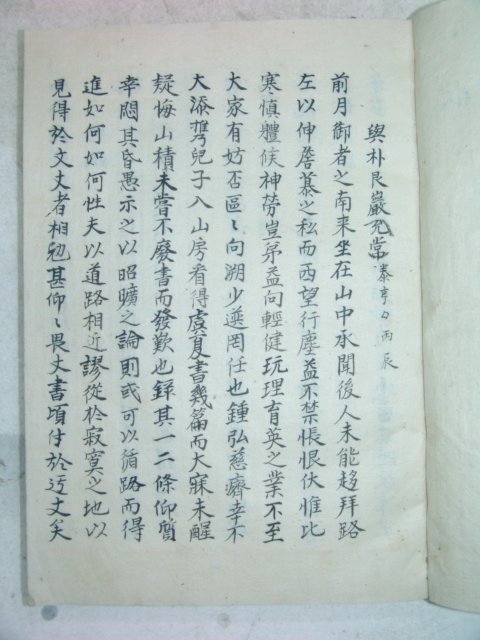 與朴艮巖允常 泰亨 丙辰
前月御者之南來坐在山中承聞後人未能趍拜路
左以伸詹慕之私而西望行塵益不禁悵恨伏惟比
寒愼軆候神勞豈弟益向輕健玩理育英之業不至
大家有妨否區〻向溯少選罔任也鍾弘慈癠幸不
大添雋兒子入山房看得虞夏書幾篇而大寐未醒
疑悔山積未嘗不廢書而發歎也錄其一二條仰質
幸悶其昏愚示之以昭曠之論則或可以循路而得
進如何如何性夫以道路相近謬從於寂寞之地以
見得於文丈者相勉甚仰〻畏丈書頃付於迃丈矣